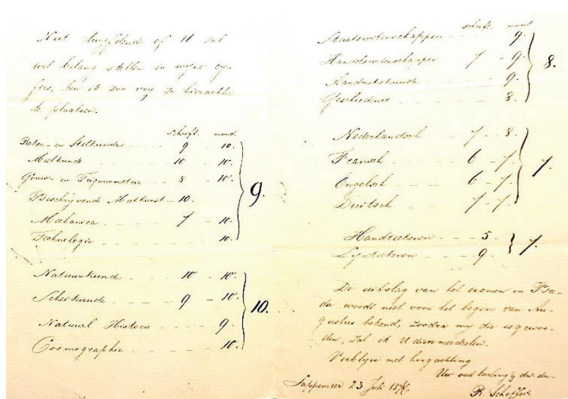 Niet twijfelende of U zal
wel belang stellen in mijne cy-
fers, ben ik zoo vrij ze hierachter
te plaatsen.
schrift. mond.
Reken- en Stelkunde 9 - 10.
Meetkunde 10 - 10.
Gonio- en Trigonometrie 8 - 10.
Beschrijvende Meetkunst - 10.
Mechanica 7 - 10.
Technologie 10.
9.
Natuurkunde 10 - 10.
Scheikunde 9 - 10.
Natuurl Historie 9.
Cosmographie 10.
10.
schrift. mond
Staatswetenschappen 9.
Handelswetenschappen 7 - 9.
Aardrijkskunde 9.
Geschiedenis 8.
8.
Nederlandsch 7. - 8.
Fransch 6 - 7.
Engelsch 6 - 7.
Duitsch 7 - 7.
7.
Handteekenen 5.
Lijnteekenen 9.
7.
De uitslag van het examen in Bre-
da wordt niet voor het begin van Au-
gustus bekend, zoodra mij die is gewor-
den, zal ik U dien mededeelen.
Verblijve met hoogachting
Sappemeer 23 Juli
R. Scheffer